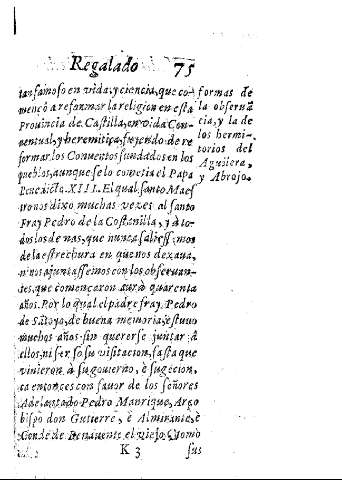 Regalado 75
tan famoso en vida, y ciencia, que co-
mençò a reformar la religion en esta
Prouincia de Castilla, en vida Con-
uentual, y heremitica, fuyendo de re
formar los Conuentos fundados en los
pueblos, aunque se lo cometia el Papa
Benedicto XIII. El qual santo Maes
tro nos dixo muchas vezes al santo
Fray Pedro de la Costanilla, y à to-
dos los de nas, que nunca saliess mos
de la estrechura en que nos dexaua,
ni nos ajuntassemos con los obseruan-
tes, que començaron aurà quarenta
años. Por lo qual el padre fray Pedro
de Satoyo, de buena memoria, estuuo
muchos años sin quererse juntar à
ellos, ni ser so su visitacion, fasta que
vinieron à su gouierno, è sugecion,
ca entonces con fauor de los señores
Adelantado Pedro Manrique, Arço
bispo don Gutierre, è Almirante, è
Conde de Benauente el viejo, Como
K 3 sus
formas de
la obseruã
cia, y la de
los hermi-
torios del
Aguilera,
y Abrojo.